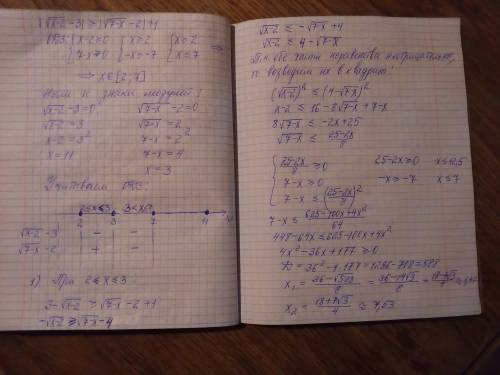 |√x-2 -3| ≥ |√7-x -2|+1
ОДЗ: { x-2≥0 { x≥2 { x≥2 ⇒
7-x≥0 -x≥-7 x≤7
⇒ x∈[2;7]
знаки модулей:
√x-2 -3=0 √7-x -2=0
√x-2=3 √7-x=2
x-2=3² 7-x=2²
x=11 7-x=4
x=3
Учитываем ОДЗ:
2≤x≤3 3<x≤7
2 3 7 11
√x-2 -3 - -
√7-x -2 + -
1) При 2≤x≤3
3-√x-2 ≥ √7-x -2+1
-√x-2 ≥ √7-x -4
√x-2 ≤ -√7-x +4
√x-2 ≤ 4-√7-x
Т.к. обе части неравенства неотрицательны,
то возводим их в квадрат:
(√x-2)² ≤ (4-√7-x)²
x-2 ≤ 16-8√7-x+7-x
8√7-x ≤ -2x+25
√7-x ≤ 25-2x/8
{ 25-2x/8 ≥0 25-2x≥0 x≤12,5
7-x≥0 -x≥-7 x≤7
7-x ≤ (25-2x/8)²
7-x ≤ 625-100x+4x²/64
448-64x ≤ 625-100x+4x²
4x²-36x+177≥0
x₁ = 36-√588/8 = 36-14√3/8 = 18-7√3/4
x₂ = 18+7√3/4 ≈ 7,53